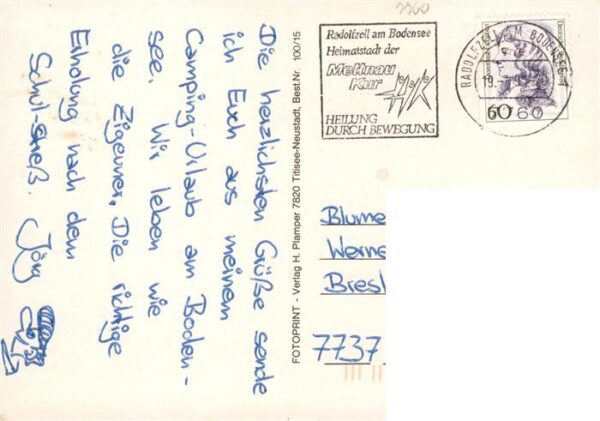 3360
Radolfzell am Bodensee
Heimatstadt der
Mettnau
Kur
HEILUNG
DURCH BEWEGUNG
RADOLFZELL AM BODENSEE 1
19.
60
60
Die herzlichsten Grüße sende
ich Euch aus meinem
Camping-Urlaub am Boden-
see. Wir leben wie
die Zigeuner. Die richtige
Erholung nach dem
Schul-streß. Jörg
FOTOPRINT - Verlag H. Plamper 7820 Titisee-Neustadt, Best.Nr. 100/15
Blume
Werne
Bresl
7737